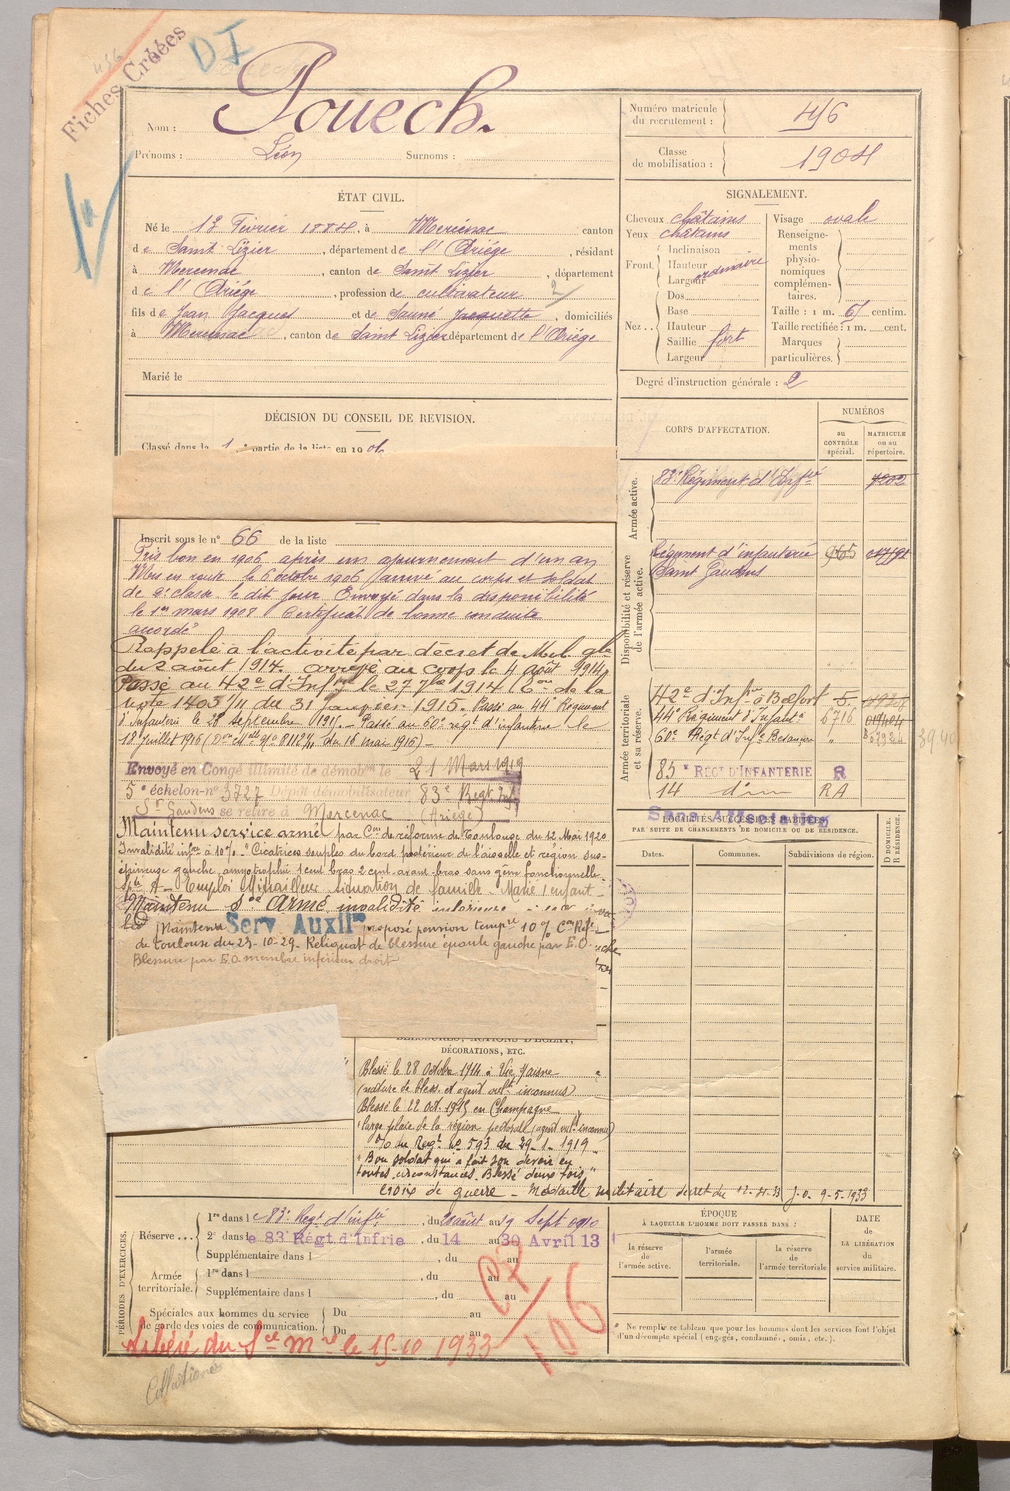 Fiches Créées
DI
Nom : Pouech.
Prénoms : Léon Surnoms :
Numéro matricule du recrutement : 416
Classe de mobilisation : 1904
ÉTAT CIVIL.
Né le 13 Février 1884, à Mercenac canton
de Saint Lizier, département de l'Ariége, résidant
à Mercenac, canton de Saint Lizier, département
de l'Ariége, profession de cultivateur 2
fils de Jean Jacques et de Sauné Jacquette, domiciliés
à Mercenac, canton de Saint Lizier département de l'Ariége
Marié le
SIGNALEMENT.
Cheveux châtains
Yeux châtains
Front. Inclinaison
Hauteur ordinaire
Largeur
Nez .. Dos
Base
Hauteur
Saillie fort
Largeur
Visage ovale
Renseignements physionomiques complémentaires.
Taille : 1 m. 61 centim.
Taille rectifiée : 1 m. cent.
Marques particulières.
Degré d'instruction générale : 2
DÉCISION DU CONSEIL DE REVISION.
Classé dans la 1e partie de la liste en 1906
Inscrit sous le n° 66 de la liste
Pris bon en 1906 après un ajournement d'un an
Mis en route le 6 octobre 1906 arrivé au corps et soldat
de 2e classe le dit jour Envoyé dans la disponibilité
le 1er mars 1908 Certificat de bonne conduite
accordé
Rappelé à l'activité par décret de Mob. gle
du 2 août 1914. arrivé au corps le 4 août 1914
Passé au 42e d'Infie le 27 7bre 1914 (Con de la
note 1403/11 du 31 janvier 1915. Passé au 44e Régiment
d'Infanterie le 28 septembre 1915 - Passé au 60e régt d'infanterie le
18 juillet 1916 (Don Mlle n° 8112/4 du 16 mai 1916) -
Envoyé en Congé illimité de démobon le 21 Mars 1919
5e échelon-n° 3727 Dépôt démobilisateur 83e Régt Inf
St Gaudens se retire à Mercenac (Ariège)
Maintenu service armé par Con de réforme de Toulouse du 12 Mai 1920
Invalidité infre à 10% - "Cicatrices souples du bord postérieur de l'aisselle et région sus-
épineuse gauche, amyotrophie 1 cent bras 2 cent. avant-bras sans gêne fonctionnelle
Emploi Mitrailleur situation de famille - Marié 1 enfant
Maintenu Sce Armé invalidité inférieure à
Maintenu Serv Auxiire proposé pension tempre 10% Con Réf.
de Toulouse du 23-10-29. Reliquat de blessure épaule gauche par E.O.
Blessure par E.O. membre inférieur droit
CORPS D'AFFECTATION.
NUMÉROS
au CONTRÔLE spécial.
MATRICULE ou au répertoire.
Armée active.
83e Régiment d'Infie 7202
Disponibilité et réserve de l'armée active.
Régiment d'infanterie
Saint Gaudens
Armée territoriale et sa réserve.
42e d'Infie à Belfort
44e Régiment d'Infantie 5716
60e Régt d'Infie Besançon
83e REGT D'INFANTERIE R
14 d'im RA
LOCALITÉS SUCCESSIVES HABITÉES
PAR SUITE DE CHANGEMENTS DE DOMICILE OU DE RÉSIDENCE.
Sans Affectation
Dates. Communes. Subdivisions de région.
D DOMICILE. R RÉSIDENCE.
BLESSURES, ACTIONS D'ÉCLAT,
DÉCORATIONS, ETC.
Blessé le 28 Octobre 1914 à Vic s/Aisne
(nature de bless. et agent vult inconnus)
Blessé le 22 Oct. 1915 en Champagne
(large plaie de la région pectorale (agent vult inconnu)
O/o du Régt No 593 du 29-1-1919
"Bon soldat qui a fait son devoir en
toutes circonstances. Blessé deux fois"
Croix de guerre - Médaille militaire J.O. 9-5-1933
PÉRIODES D'EXERCICES.
Réserve ... 1re dans le 83e Régt d'infie, du août au 9 Sept 1910
2e dans le 83 Régt d'Infrie, du 14 au 30 Avril 13
Supplémentaire dans l , du au
Armée territoriale. 1re dans l , du au
Supplémentaire dans l , du au
Spéciales aux hommes du service de garde des voies de communication. Du au
Du au
ÉPOQUE
À LAQUELLE L'HOMME DOIT PASSER DANS :
la réserve de l'armée active.
l'armée territoriale.
la réserve de l'armée territoriale
DATE DE LA LIBÉRATION du service militaire.
* Ne remplir ce tableau que pour les hommes dont les services font l'objet
d'un décompte spécial (engagés, condamnés, omis, etc.).
Libéré du Sce Mre le 15-10 1933
Collationné